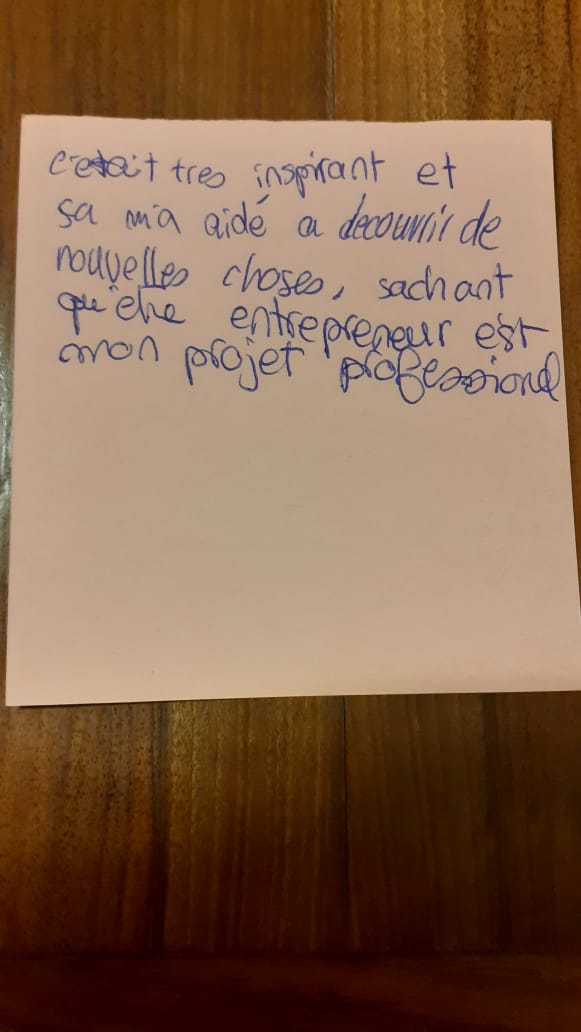 c'etait tres inspirant et
sa m'a aidé a decouvrir de
nouvelles choses, sachant
qu'être entrepreneur est
mon projet professionel